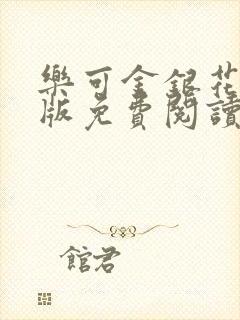 樂可金銀花
版免費閱讀
館君